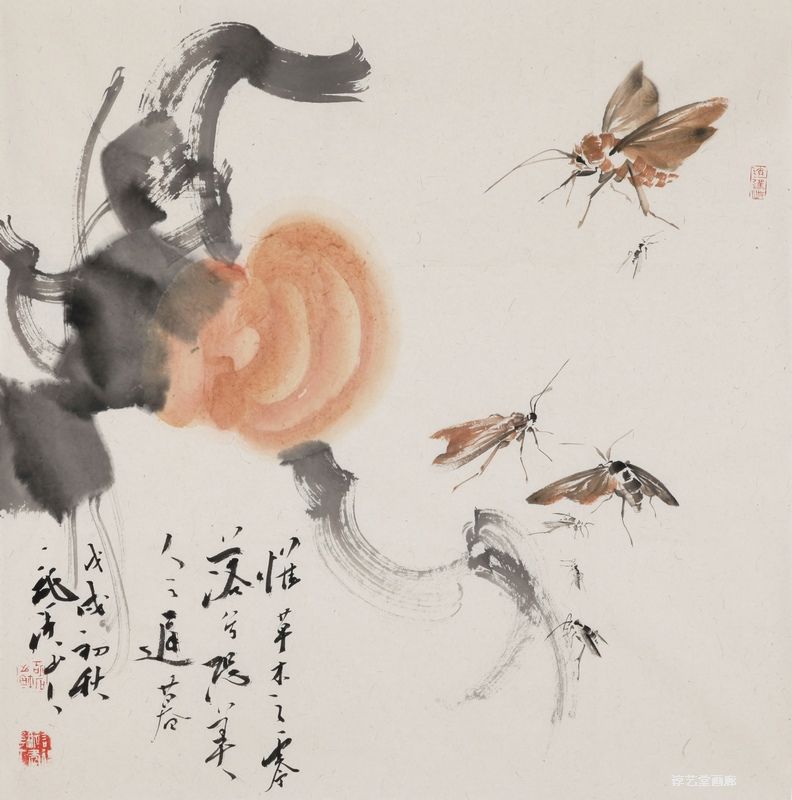 惟草木之零
落兮恐美
人之遲暮
戊戌初秋
艺堂画廊